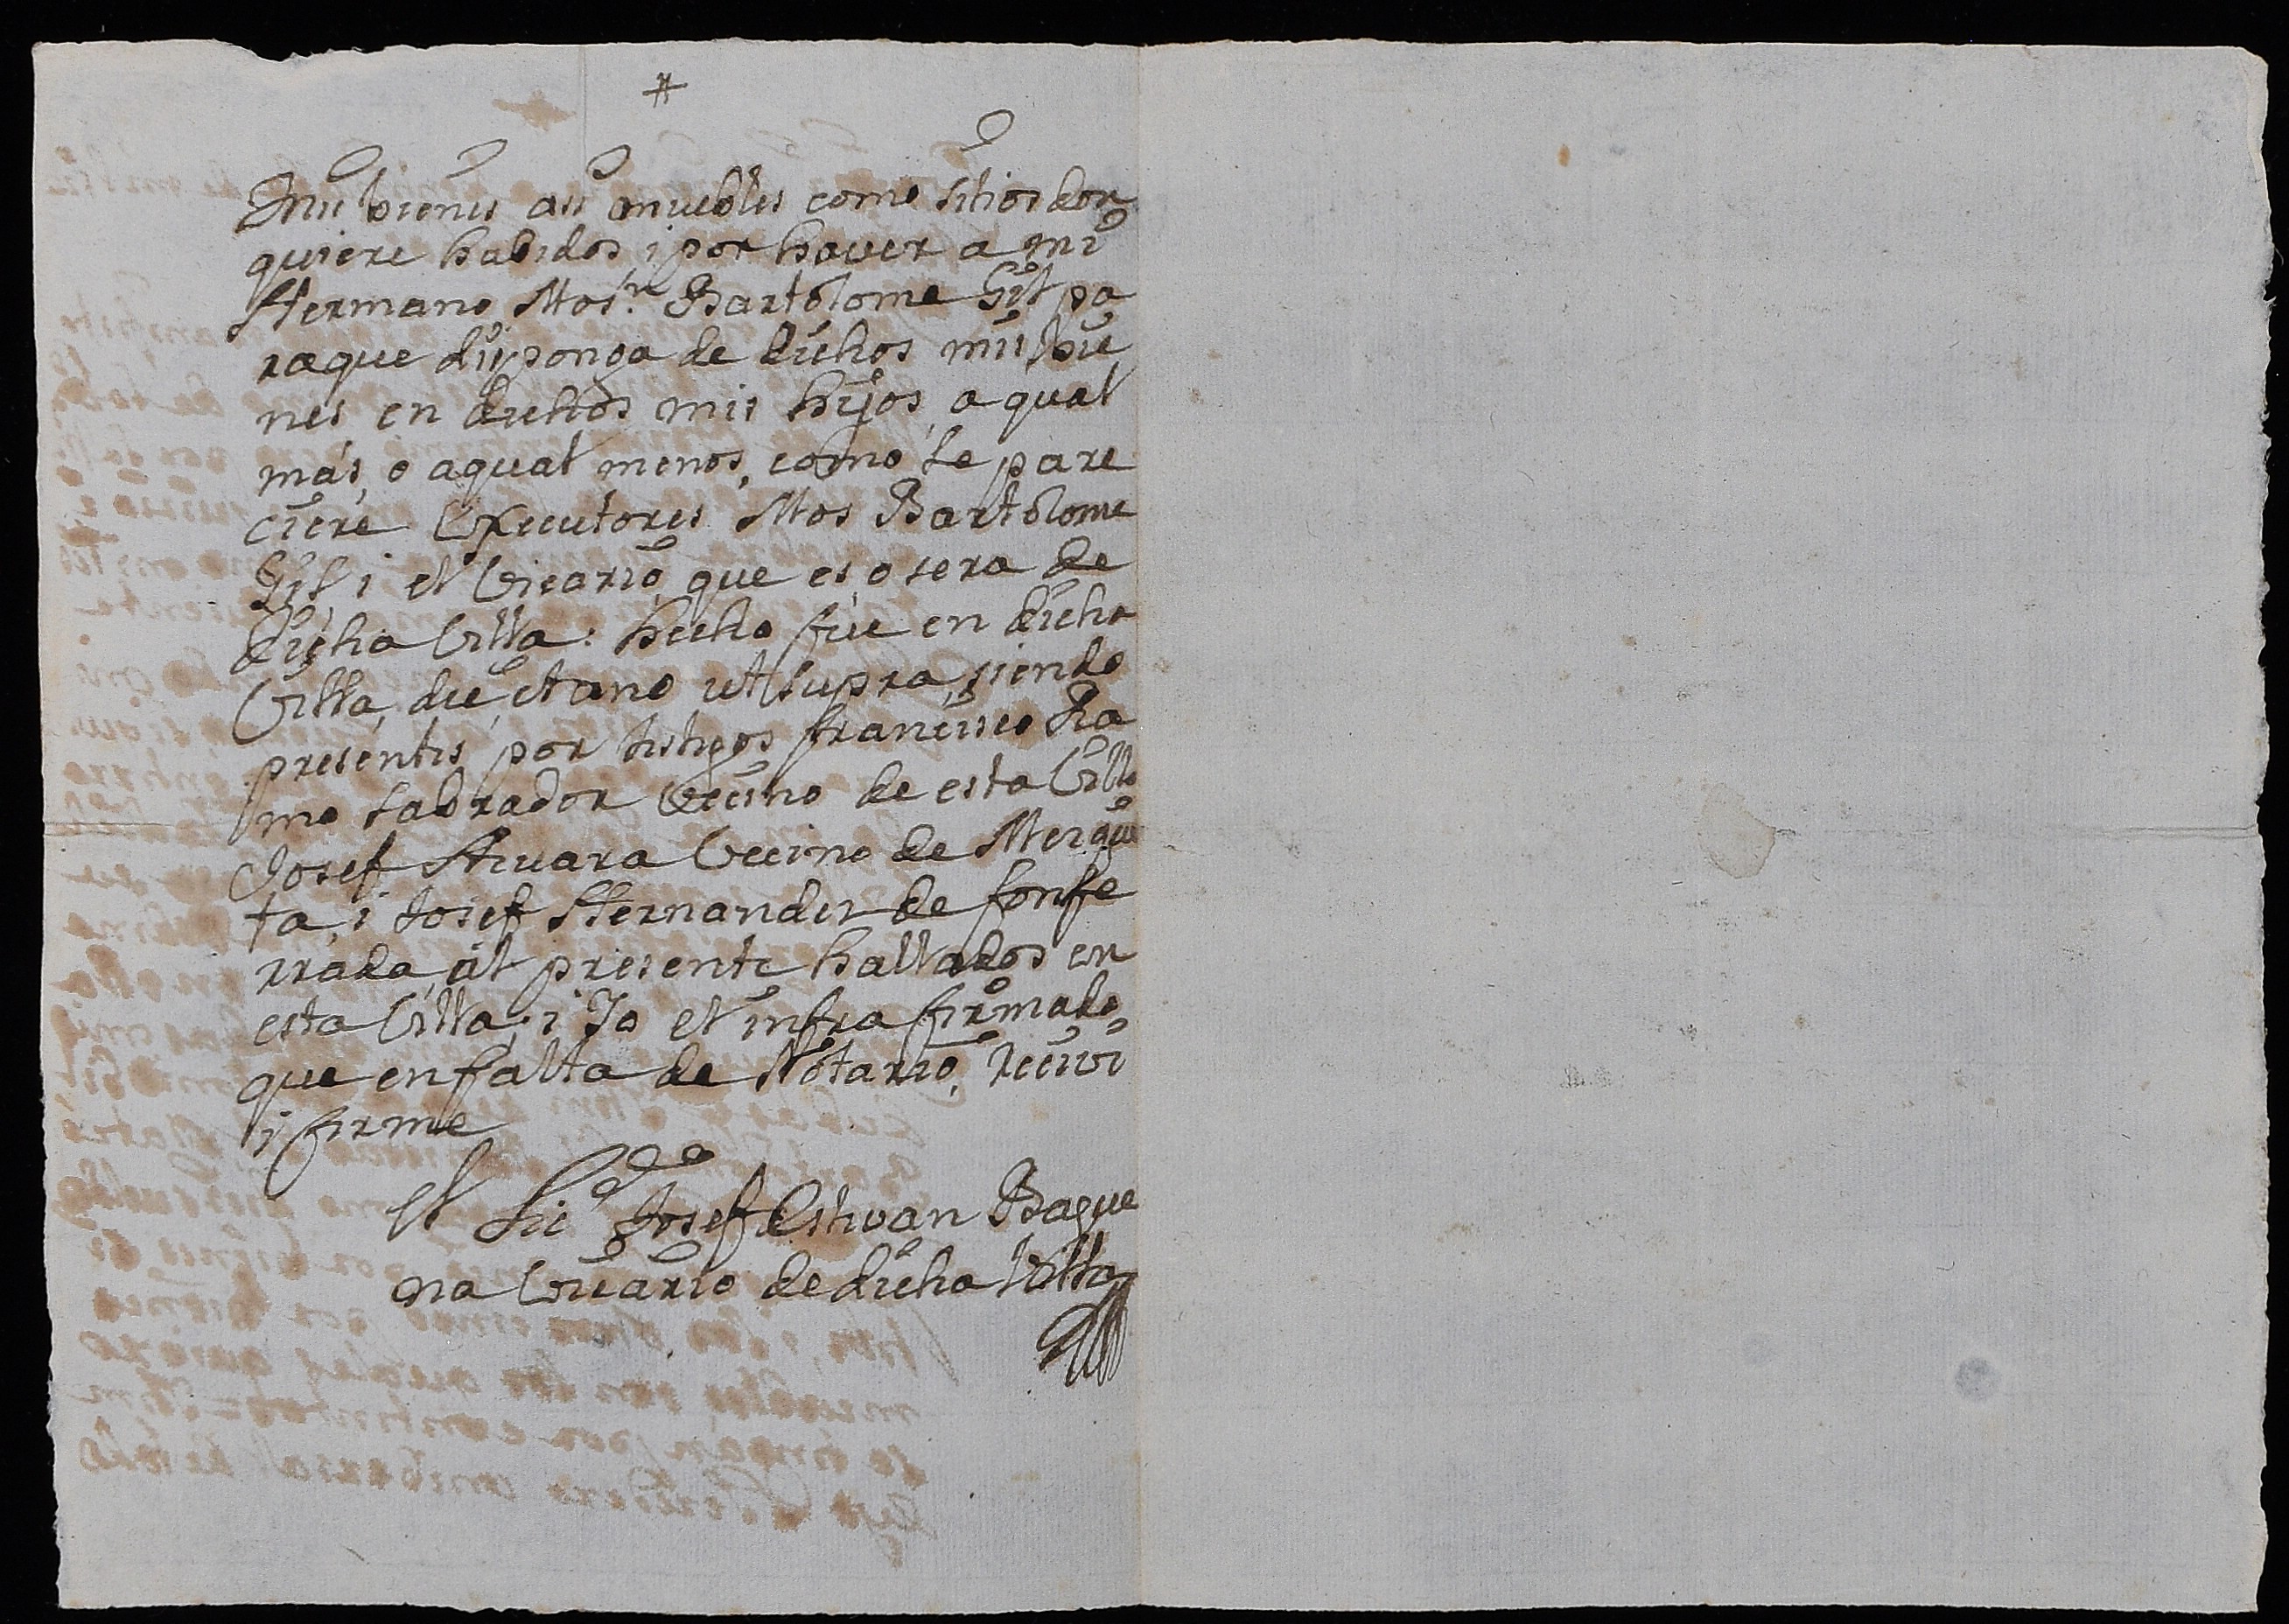 mis bienes asi muebles como sitios don
quiere habidos, i por haver a mi
Hermano Mosn. Bartolome Gil pa
raque disponga de dichos mis bie
nes en dichos mis hijos a qual
más, o aqual menos, como le pare
ciere Executores Mos Bartolome
Gil i el Vicario que es, o sera de
dicha Villa: hecho fue en dicha
Villa, die, et ano ut supra, siendo
presentes por testigos francisco Ra
mo labrador vecino de esta Villa
Josef Vecino de Mezqui
ta, i Josef Hernandez de fonfe
rrada, al presente hallados en
esta Villa; i Io el infra firmado
que enfalta de Notario, recivi
i firme
el Licdo Josef Estevan Bague
na Vicario de dicha Villa